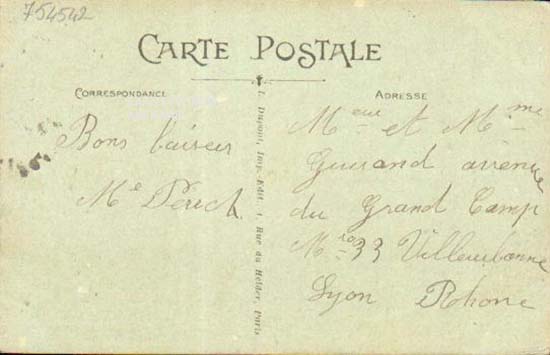 754542
CARTE POSTALE
CORRESPONDANCE
Bons baiser
Me Périch
L. Dupont, Imp.-Edit. 1, Rue du Helder, Paris
ADRESSE
Meur et Mme
avenue
du Grand Camp
Nro 33 Villeurbanne
Lyon Rhone